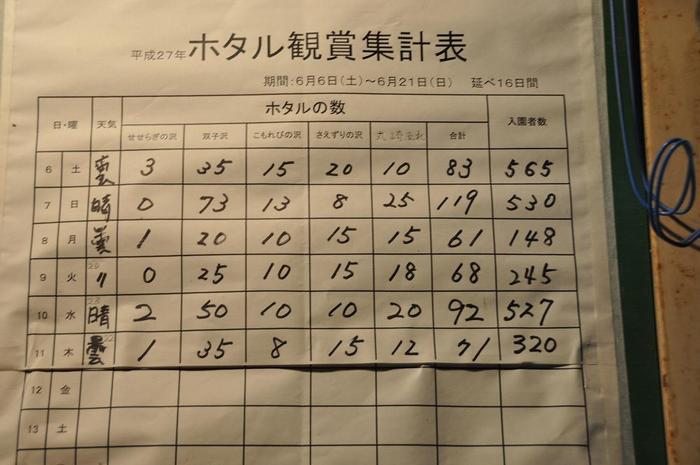 平成27年 ホタル観賞集計表
期間：6月6日（土）～6月21日（日） 延べ16日間
日・曜 天気 ホタルの数 入園者数
せせらぎの沢 双子沢 こもれびの沢 さえずりの沢 合計
6 土 曇 3 35 15 20 10 83 565
7 日 晴 0 73 13 8 25 119 530
8 月 曇 1 20 10 15 15 61 148
9 火 〃 0 25 10 15 18 68 245
10 水 晴 2 50 10 10 20 92 527
11 木 曇 1 35 8 15 12 71 320
12 金
13 土